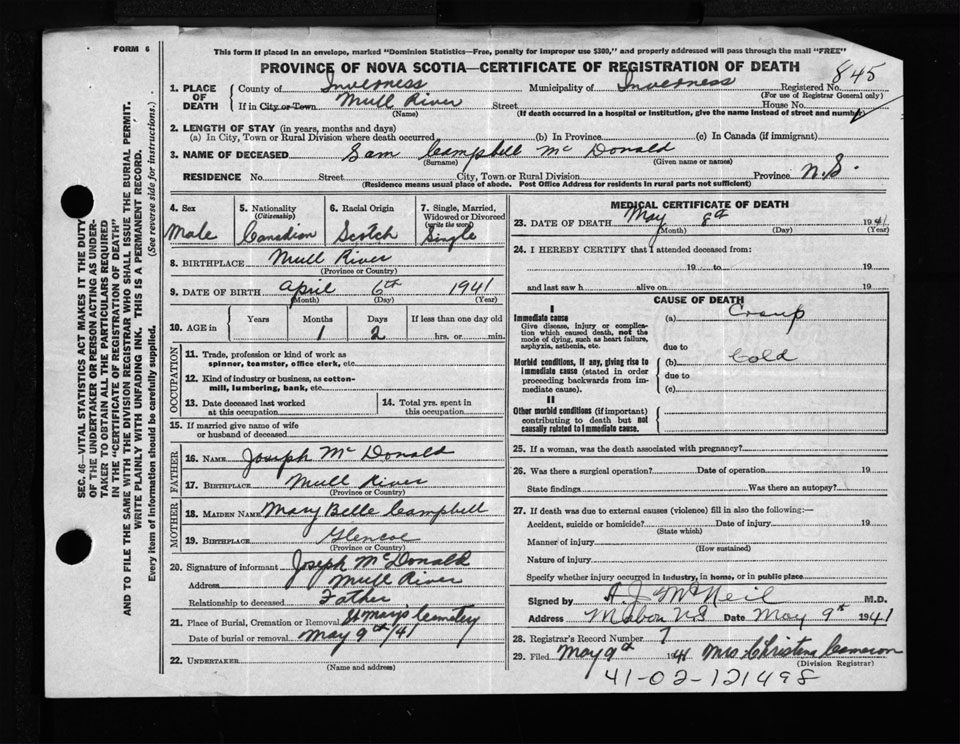 FORM 6
This form if placed in an envelope, marked "Dominion Statistics—Free, penalty for improper use $300," and properly addressed will pass through the mail "FREE"
PROVINCE OF NOVA SCOTIA—CERTIFICATE OF REGISTRATION OF DEATH
845
1. PLACE OF DEATH
County of Inverness Municipality of Inverness Registered No.
(For use of Registrar General only)
If in City or Town Mull River Street House No.
(Name) (If death occurred in a hospital or institution, give the name instead of street and number)
2. LENGTH OF STAY (in years, months and days)
(a) In City, Town or Rural Division where death occurred (b) In Province (c) In Canada (if immigrant)
3. NAME OF DECEASED Sam Campbell McDonald
(Surname) (Given name or names)
RESIDENCE No. Street City, Town or Rural Division Province N.S.
(Residence means usual place of abode. Post Office Address for residents in rural parts not sufficient)
4. Sex
Male
5. Nationality
(Citizenship)
Canadian
6. Racial Origin
Scotch
7. Single, Married,
Widowed or Divorced
(write the word)
Single
8. BIRTHPLACE Mull River
(Province or Country)
9. DATE OF BIRTH April 6th 1941
(Month) (Day) (Year)
10. AGE in
Years Months Days If less than one day old
1 2 hrs. or min.
OCCUPATION
11. Trade, profession or kind of work as
spinner, teamster, office clerk, etc.
12. Kind of industry or business, as cotton-
mill, lumbering, bank, etc.
13. Date deceased last worked
at this occupation
14. Total yrs. spent in
this occupation
15. If married give name of wife
or husband of deceased
FATHER
16. NAME Joseph McDonald
17. BIRTHPLACE Mull River
(Province or Country)
MOTHER
18. MAIDEN NAME Mary Belle Campbell
19. BIRTHPLACE Glencoe
(Province or Country)
20. Signature of informant Joseph McDonald
Address Mull River
Relationship to deceased Father
21. Place of Burial, Cremation or Removal St Marys Cemetery
Date of burial or removal May 9th/41
22. UNDERTAKER
(Name and address)
MEDICAL CERTIFICATE OF DEATH
23. DATE OF DEATH May 8th 1941
(Month) (Day) (Year)
24. I HEREBY CERTIFY that I attended deceased from:
19 to 19
and last saw h alive on 19
CAUSE OF DEATH
I
Immediate cause (a) Croup
Give disease, injury or complica-
tion which caused death, not the
mode of dying, such as heart failure,
asphyxia, asthenia, etc.
due to
Morbid conditions, if any, giving rise to
immediate cause (stated in order
proceeding backwards from im-
mediate cause).
(b) Cold
due to
(c)
II
Other morbid conditions (if important)
contributing to death but not
causally related to immediate cause.
25. If a woman, was the death associated with pregnancy?
26. Was there a surgical operation? Date of operation 19
State findings Was there an autopsy?
27. If death was due to external causes (violence) fill in also the following:—
Accident, suicide or homicide? Date of injury 19
(State which)
Manner of injury
(How sustained)
Nature of injury
Specify whether injury occurred in industry, in home, or in public place
Signed by A.J. McNeil M.D.
Address Mabou NS Date May 9th 1941
28. Registrar's Record Number 7
29. Filed May 9th 1941 Mrs. Christena Cameron
(Division Registrar)
41-02-121498
SEC. 46—VITAL STATISTICS ACT MAKES IT THE DUTY
OF THE UNDERTAKER OR PERSON ACTING AS UNDER-
TAKER TO OBTAIN ALL THE PARTICULARS REQUIRED
IN THE "CERTIFICATE OF REGISTRATION OF DEATH"
AND TO FILE THE SAME WITH THE DIVISION REGISTRAR WHO SHALL ISSUE THE BURIAL PERMIT.
WRITE PLAINLY WITH UNFADING INK. THIS IS A PERMANENT RECORD.
Every item of information should be carefully supplied. (See reverse side for instructions.)